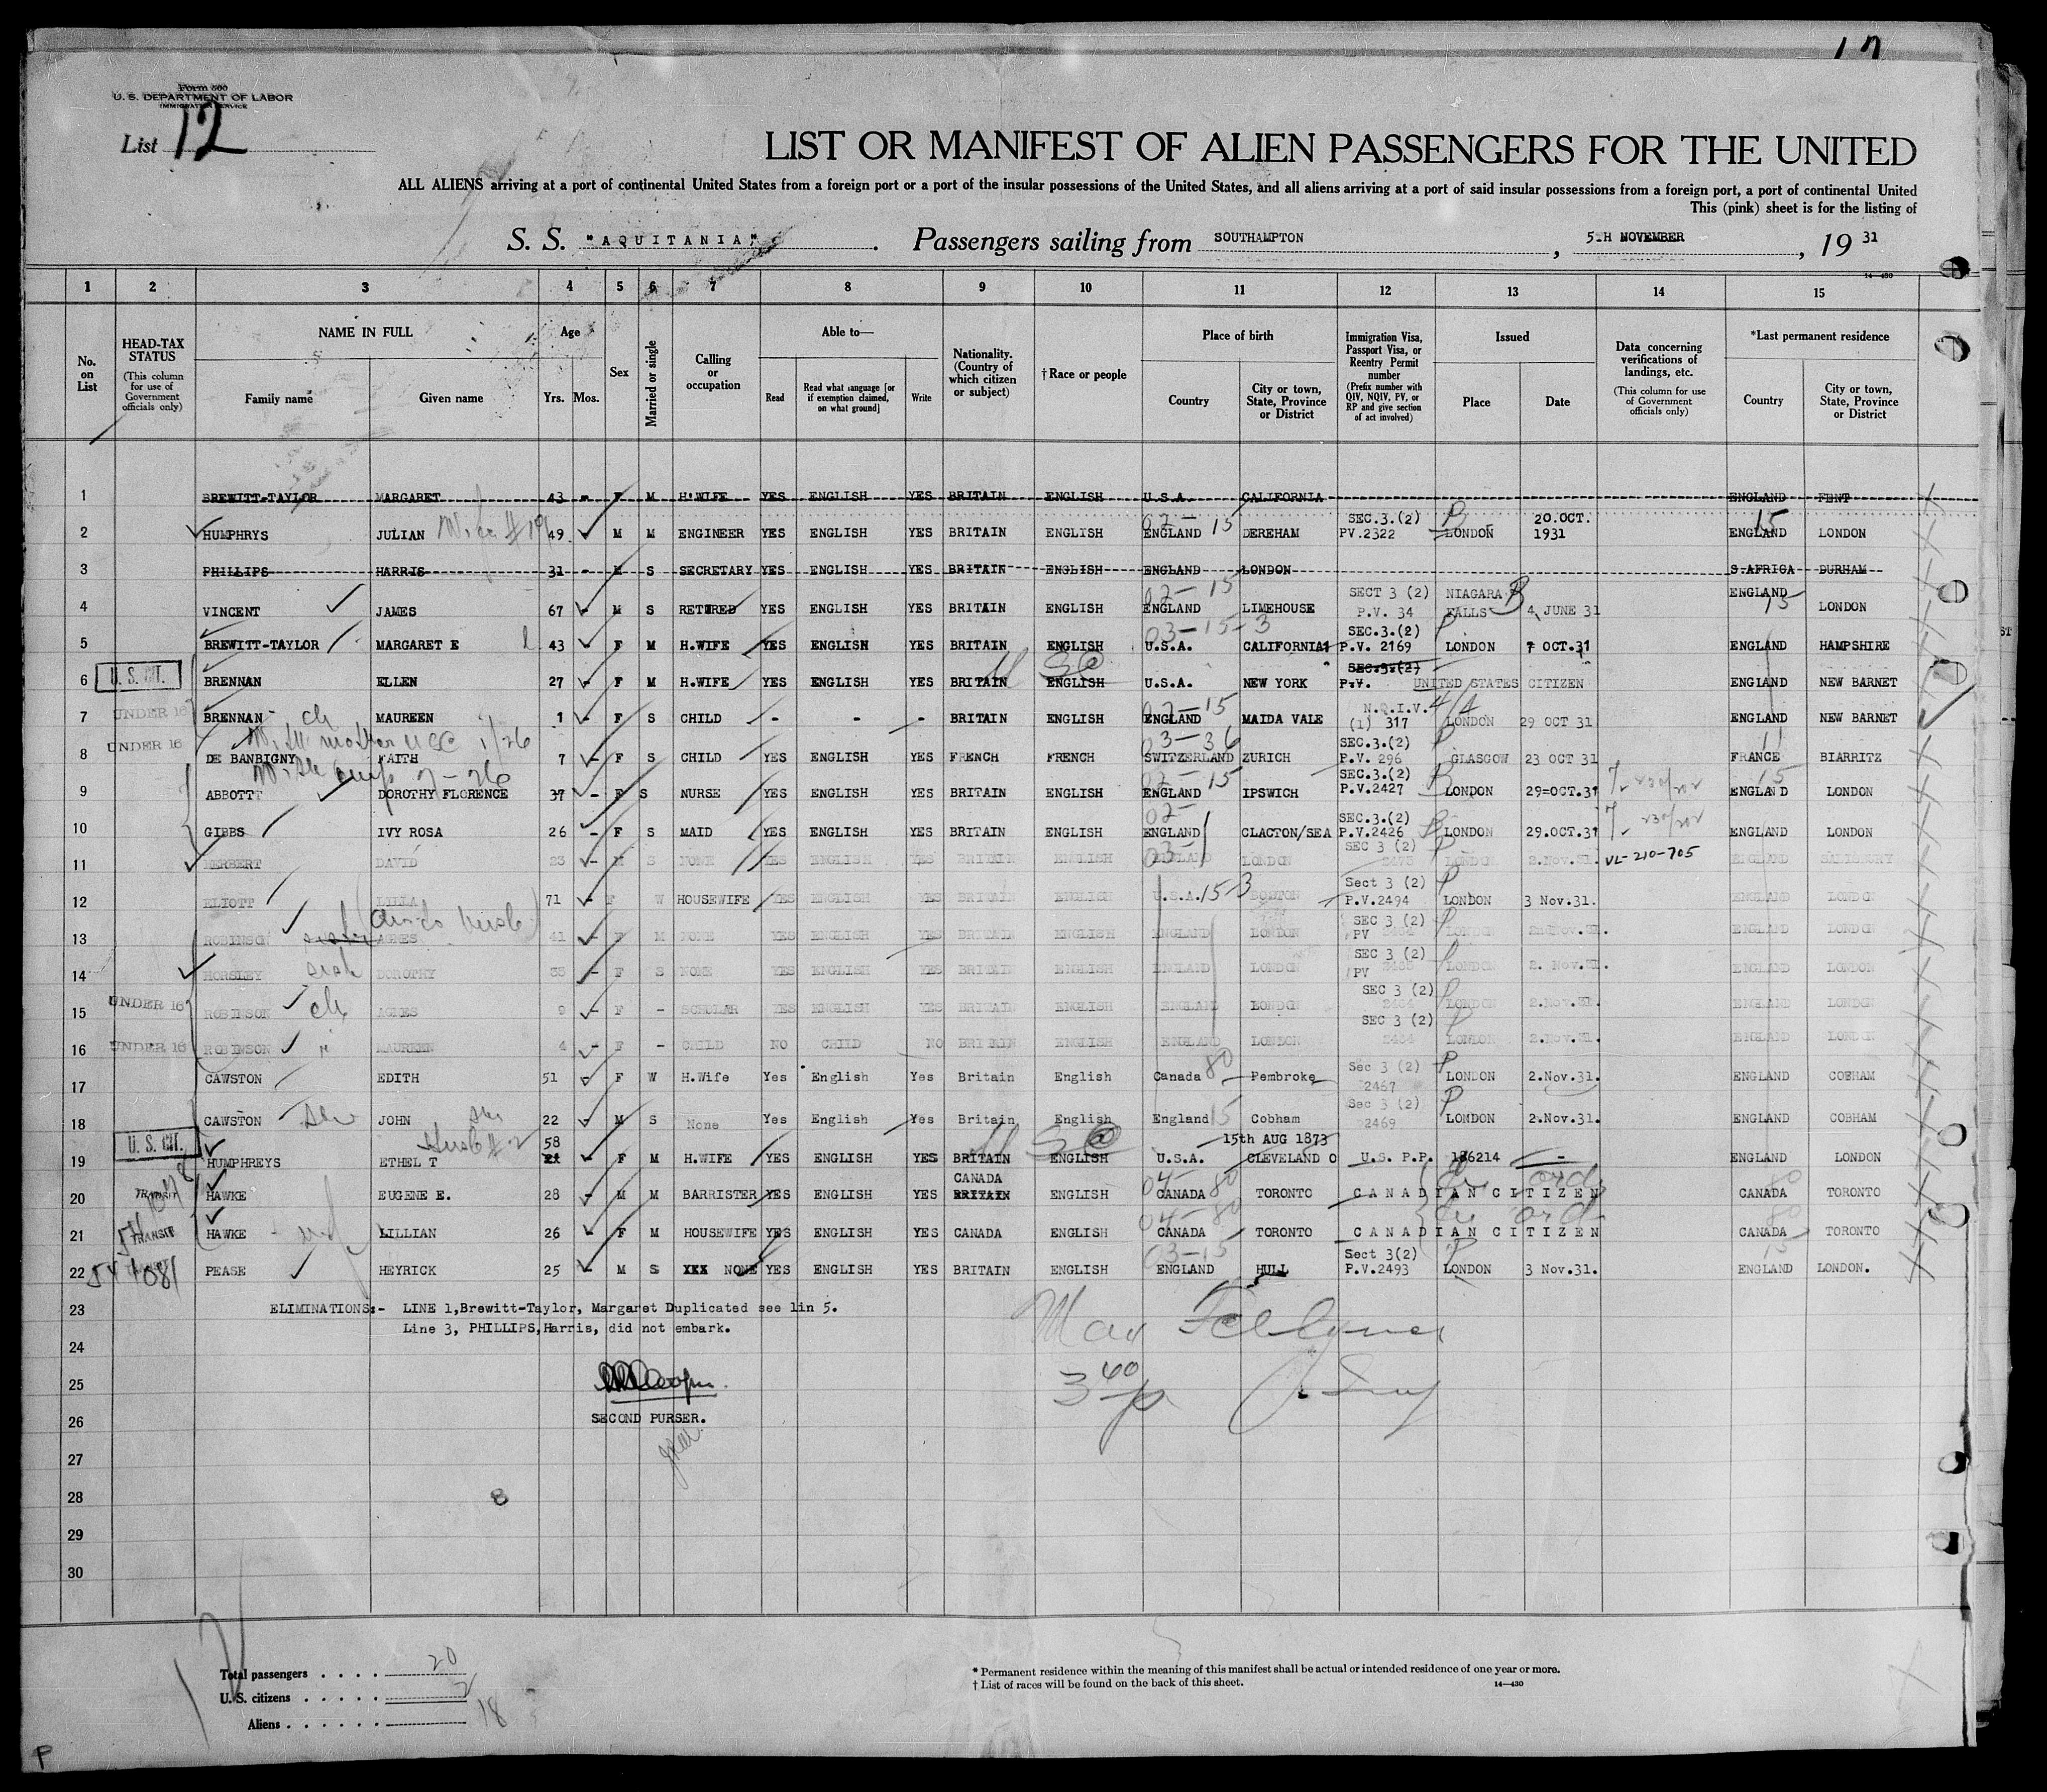 17
Form 500
U. S. DEPARTMENT OF LABOR
IMMIGRATION SERVICE
List 12
LIST OR MANIFEST OF ALIEN PASSENGERS FOR THE UNITED
ALL ALIENS arriving at a port of continental United States from a foreign port or a port of the insular possessions of the United States, and all aliens arriving at a port of said insular possessions from a foreign port, a port of continental United
This (pink) sheet is for the listing of
S. S. "AQUITANIA" . Passengers sailing from SOUTHAMPTON , 5TH NOVEMBER , 19 31
14—430
1 2 3 4 5 6 7 8 9 10 11 12 13 14 15
No. on List
HEAD-TAX STATUS (This column for use of Government officials only)
NAME IN FULL Family name Given name
Age Yrs. Mos.
Sex
Married or single
Calling or occupation
Able to— Read Read what language [or if exemption claimed, on what ground] Write
Nationality. (Country of which citizen or subject)
†Race or people
Place of birth Country City or town, State, Province or District
Immigration Visa, Passport Visa, or Reentry Permit number (Prefix number with QIV, NQIV, PV, or RP and give section of act involved)
Issued Place Date
Data concerning verifications of landings, etc. (This column for use of Government officials only)
*Last permanent residence Country City or town, State, Province or District
1 BREWITT-TAYLOR MARGARET 43 - F M H.WIFE YES ENGLISH YES BRITAIN ENGLISH U.S.A. CALIFORNIA ENGLAND
2 HUMPHRYS JULIAN 49 M M ENGINEER YES ENGLISH YES BRITAIN ENGLISH 02-15 ENGLAND DEREHAM SEC.3.(2) PV.2322 LONDON 20.OCT. 1931 15 ENGLAND LONDON
3 PHILLIPS HARRIS 31 - M S SECRETARY YES ENGLISH YES BRITAIN ENGLISH ENGLAND LONDON S.AFRICA DURHAM
4 VINCENT JAMES 67 - M S RETIRED YES ENGLISH YES BRITAIN ENGLISH 02-15 ENGLAND LIMEHOUSE SECT 3 (2) P.V. 34 NIAGARA FALLS 4 JUNE 31 ENGLAND 15 LONDON
5 BREWITT-TAYLOR MARGARET E 43 F M H.WIFE YES ENGLISH YES BRITAIN ENGLISH 03-15-3 U.S.A. CALIFORNIA SEC.3.(2) P.V. 2169 LONDON 7 OCT.31 ENGLAND HAMPSHIRE
6 U. S. CIT. BRENNAN ELLEN 27 F M H.WIFE YES ENGLISH YES BRITAIN ENGLISH U.S.A. NEW YORK SEC.3.(2) P.V. UNITED STATES CITIZEN ENGLAND NEW BARNET
7 UNDER 16 BRENNAN ch MAUREEN 1 - F S CHILD - - - BRITAIN ENGLISH 02-15 ENGLAND MAIDA VALE N.Q.I.V. 4/4 (1) 317 LONDON 29 OCT 31 ENGLAND NEW BARNET
8 UNDER 16 DE BANBIGNY FAITH 7 - F S CHILD YES ENGLISH YES FRENCH FRENCH 03-36 SWITZERLAND ZURICH SEC.3.(2) P.V. 296 GLASGOW 23 OCT 31 FRANCE BIARRITZ
9 ABBOTT DOROTHY FLORENCE 37 - F S NURSE YES ENGLISH YES BRITAIN ENGLISH 02-15 ENGLAND IPSWICH SEC.3.(2) P.V.2427 LONDON 29=OCT.31 15 ENGLAND LONDON
10 GIBBS IVY ROSA 26 - F S MAID YES ENGLISH YES BRITAIN ENGLISH 02- ENGLAND CLACTON/SEA SEC.3.(2) P.V.2426 LONDON 29.OCT.31 ENGLAND LONDON
11 HERBERT DAVID 23 - M S NONE YES ENGLISH YES BRITAIN ENGLISH 03- ENGLAND LONDON SEC 3 (2) 2473 LONDON 2.Nov.31. VL-210-705 ENGLAND SALISBURY
12 ELIOTT LILLA 71 - F W HOUSEWIFE YES ENGLISH YES BRITAIN ENGLISH U.S.A. 15-3 BOSTON Sect 3 (2) P.V.2494 LONDON 3 Nov.31. ENGLAND LONDON
13 ROBINSON AGNES 41 - F M NONE YES ENGLISH YES BRITAIN ENGLISH ENGLAND LONDON SEC 3 (2) PV LONDON 2.Nov.31. ENGLAND LONDON
14 HORSLEY DOROTHY - F S NONE YES ENGLISH YES BRITAIN ENGLISH ENGLAND LONDON SEC 3 (2) PV LONDON 2. Nov.31. ENGLAND LONDON
15 UNDER 16 ROBINSON ch AGNES 9 - F - SCHOLAR YES ENGLISH YES BRITAIN ENGLISH ENGLAND LONDON SEC 3 (2) 2484 LONDON 2.Nov.31. ENGLAND LONDON
16 UNDER 16 ROBINSON MAUREEN 4 - F - CHILD NO CHILD NO BRITAIN ENGLISH ENGLAND LONDON SEC 3 (2) 2484 LONDON 2.Nov.31. ENGLAND LONDON
17 CAWSTON EDITH 51 F W H.Wife Yes English Yes Britain English Canada 80 Pembroke Sec 3 (2) 2467 LONDON 2.Nov.31. ENGLAND COBHAM
18 CAWSTON JOHN 22 M S None Yes English Yes Britain English England 15 Cobham Sec 3 (2) 2469 LONDON 2.Nov.31. ENGLAND COBHAM
19 U. S. CIT. HUMPHREYS ETHEL T 58 - F M H.WIFE YES ENGLISH YES BRITAIN ENGLISH U.S.A. 15th AUG 1873 CLEVELAND O U.S. P.P. 186214 - ENGLAND LONDON
20 TRANSIT HAWKE EUGENE E. 28 - M M BARRISTER YES ENGLISH YES CANADA BRITAIN ENGLISH 04-80 CANADA TORONTO CANADIAN CITIZEN 80 CANADA TORONTO
21 TRANSIT HAWKE wf LILLIAN 26 - F M HOUSEWIFE YES ENGLISH YES CANADA ENGLISH 04-80 CANADA TORONTO CANADIAN CITIZEN 80 CANADA TORONTO
22 PEASE HEYRICK 25 - M S XXX NONE YES ENGLISH YES BRITAIN ENGLISH 03-15 ENGLAND HULL Sect 3(2) P.V.2493 LONDON 3 Nov.31. 15 ENGLAND LONDON.
23 ELIMINATIONS:- LINE 1,Brewitt-Taylor, Margaret Duplicated see lin 5.
Line 3, PHILLIPS,Harris, did not embark.
24
25
26 SECOND PURSER.
27
28 8
29
30
Total passengers . . . . 20
U. S. citizens . . . . . . 2
Aliens . . . . . . 18
* Permanent residence within the meaning of this manifest shall be actual or intended residence of one year or more.
† List of races will be found on the back of this sheet. 14—430
P